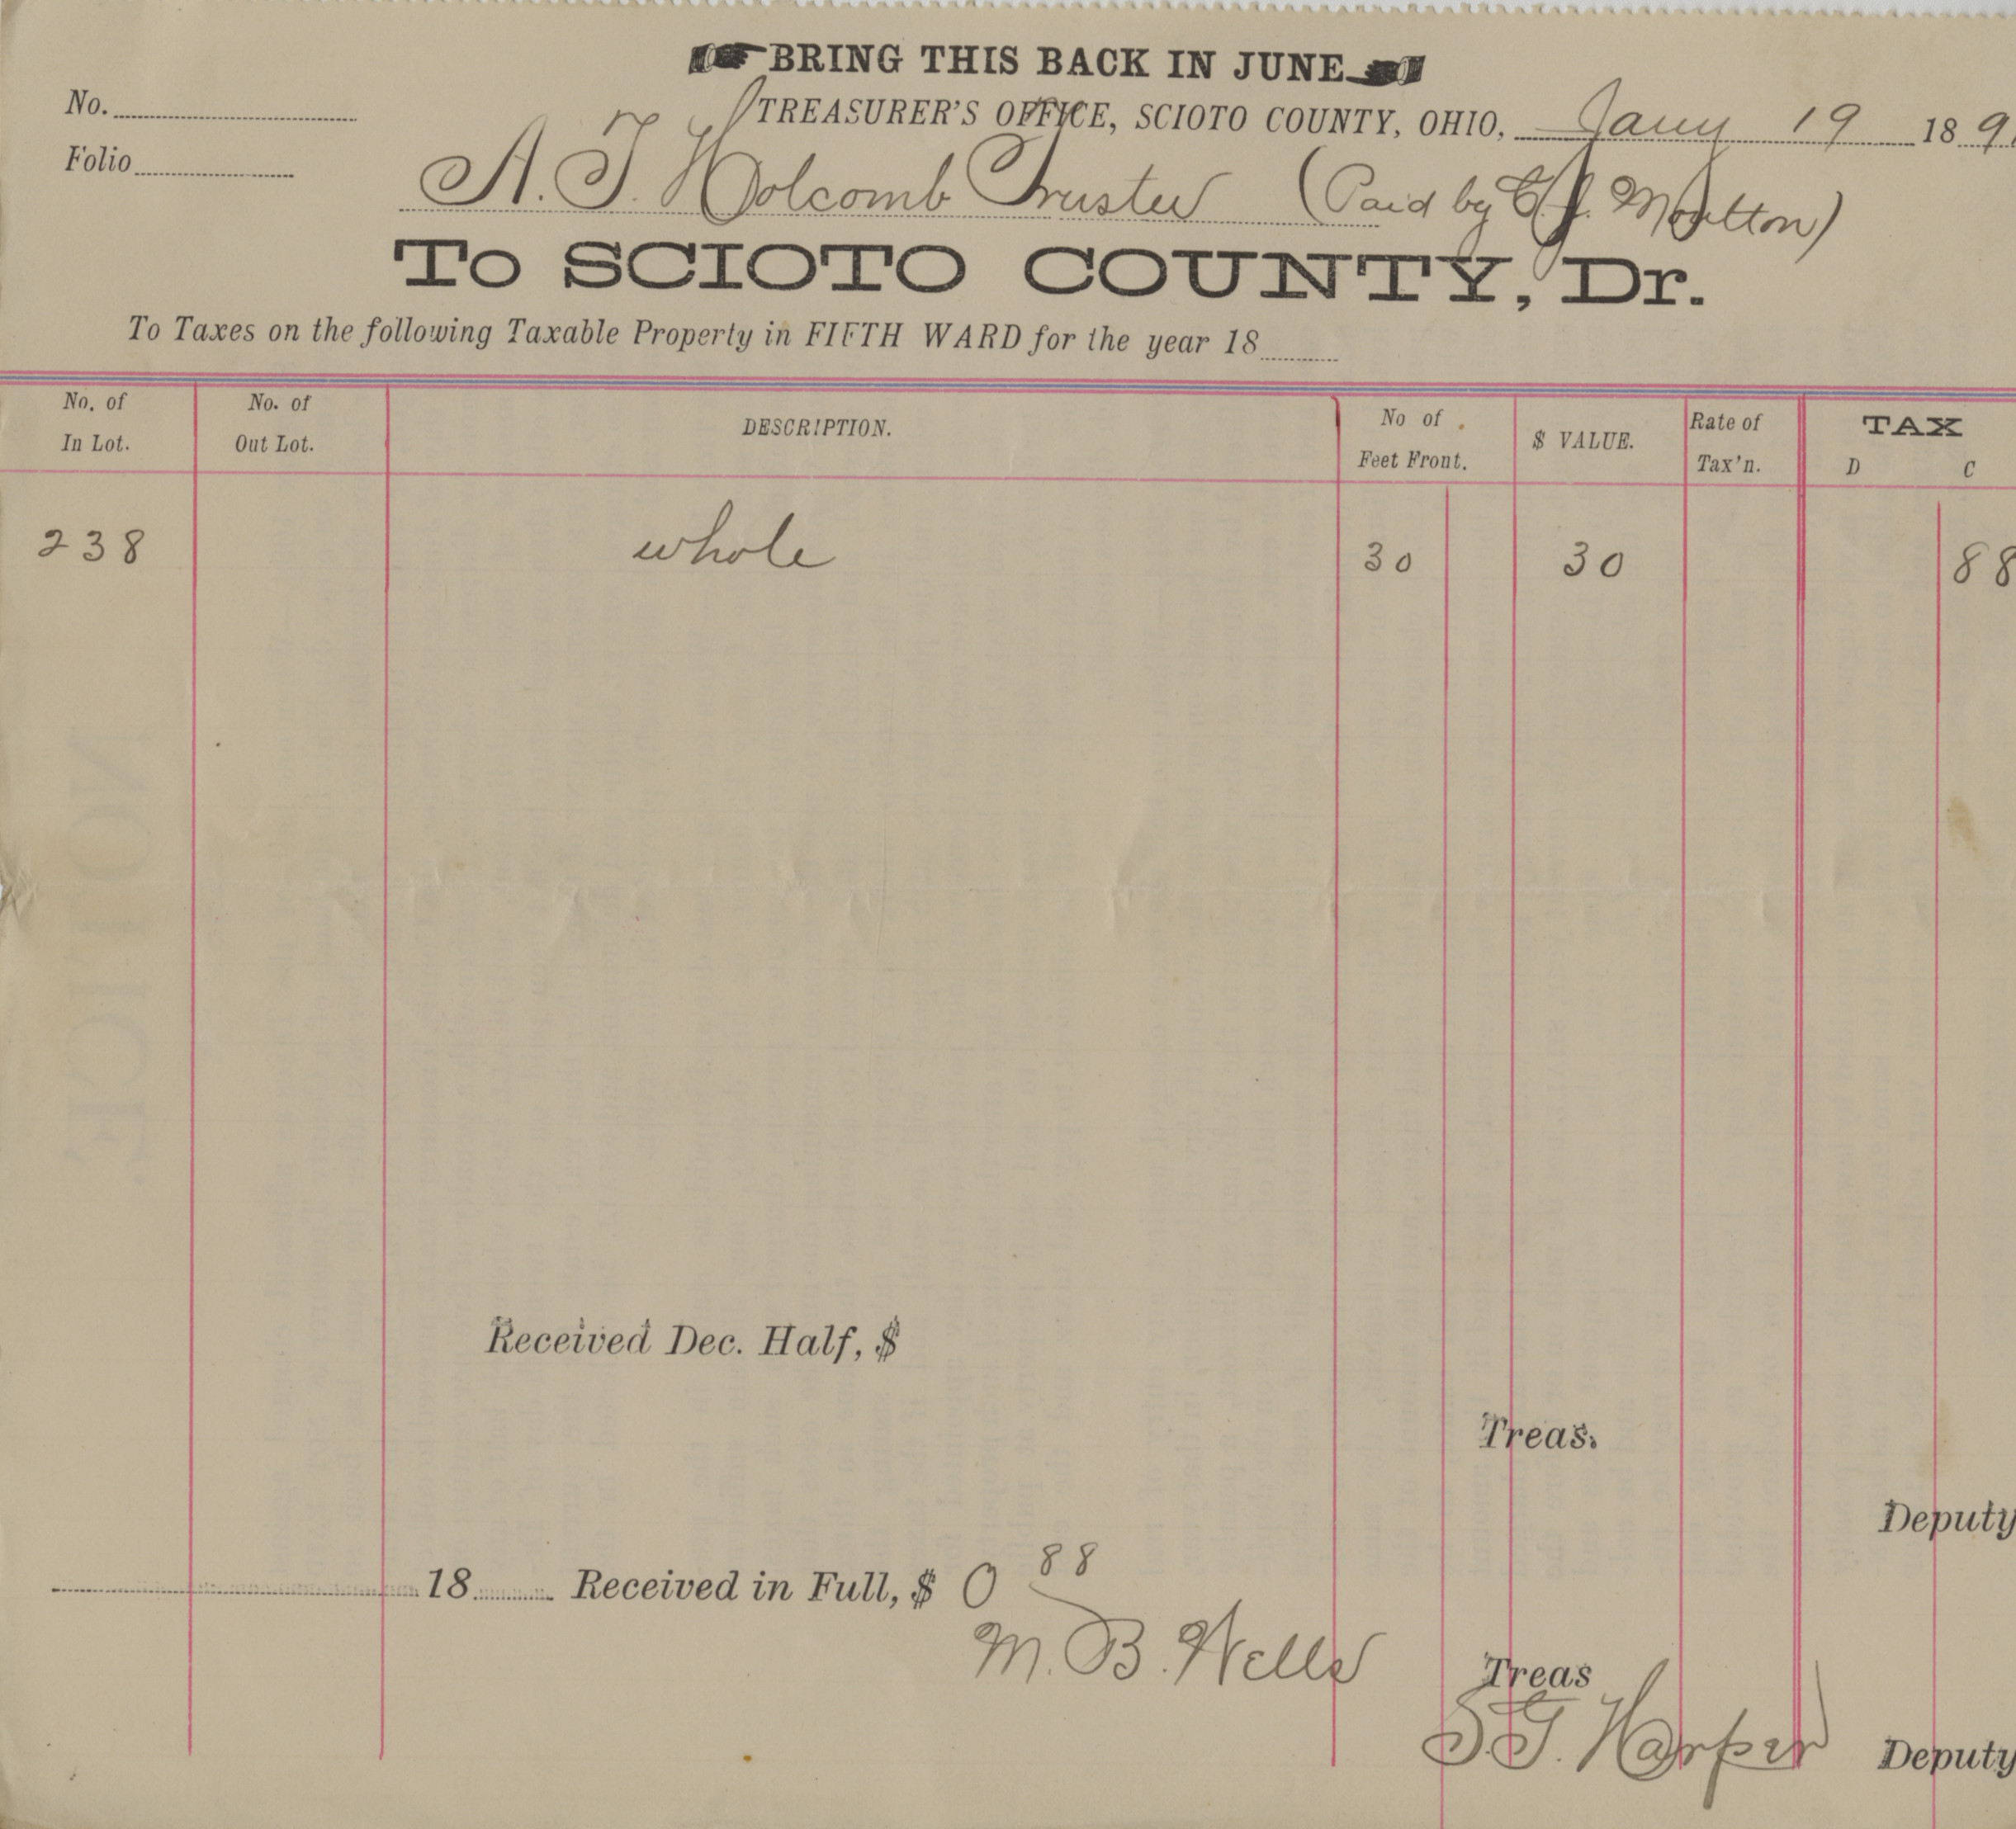 BRING THIS BACK IN JUNE
No. TREASURER'S OFFICE, SCIOTO COUNTY, OHIO, Jany 19 189
Folio
A. T. Holcomb Trustee (Paid by C. J. Moulton)
To SCIOTO COUNTY, Dr.
To Taxes on the following Taxable Property in FIFTH WARD for the year 18
No. of In Lot. No. of Out Lot. DESCRIPTION. No of Feet Front. $ VALUE. Rate of Tax'n. TAX D C
238 whole 30 30 88
Received Dec. Half, $
Treas.
Deputy
18 Received in Full, $ 0 88
M. B. Wells Treas
S. G. Harper Deputy
NOTICE